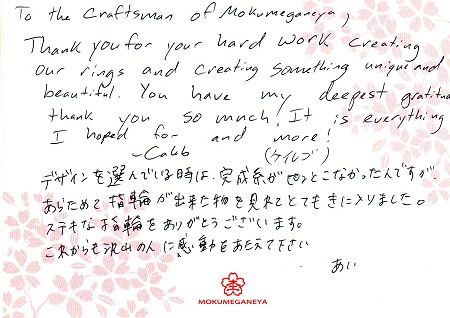 To the Craftsman of Mokumeganeya,
Thank you for your hard work creating
our rings and creating something unique and
beautiful. You have my deepest gratitude
thank you so much! It is everything
I hoped for and more!
-Caleb (ケイレブ)
デザインを選んでいる時は、完成系が
あらためて指輪が出来た物を見れてとてもきに入りました。
ステキな指輪をありがとうございます。
これからも沢山の人に感動をあたえて下さい
あい
MOKUMEGANEYA